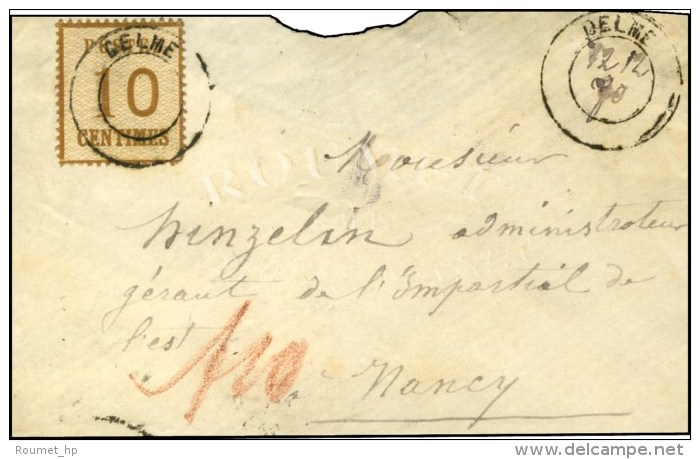 POSTES
10
CENTIMES
DELME
DELME
12 12
70
Monsieur
hinzelin administrateur
gérant de l'Impartial de
l'est
10
Nancy
Roumet_hp
©delcampe.net